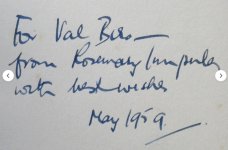 For Val Biro —
from Rosemary
with best wishes
May 1959.